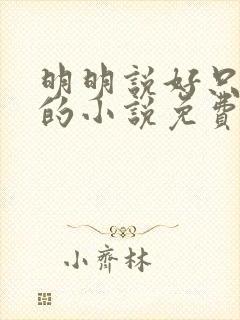 明明說好只
的小說免費
小齊林